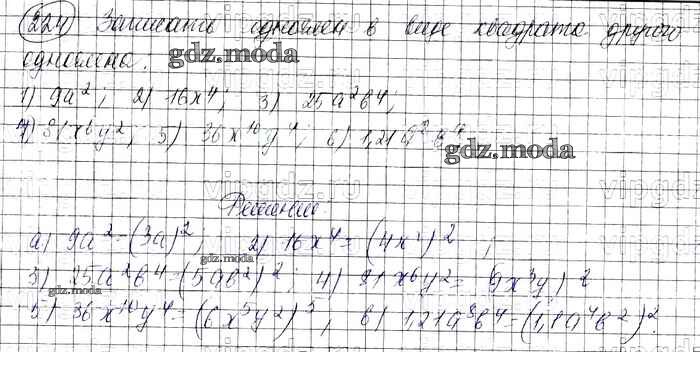 224 Записать одночлен в виде квадрата другого
одночлена. gdz.moda
1) 9a²; 2) 16x⁴; 3) 25a²b⁴;
4) 81x⁶y²; 5) 36x¹⁰y⁴; 6) 1,21a⁸b⁴
gdz.moda
vipgdz.ru
Решение
a) 9a²=(3a)²; 2) 16x⁴=(4x²)²;
gdz.moda
3) 25a²b⁴=(5ab²)²; 4) 81x⁶y²=(9x³y)²
gdz.moda
5) 36x¹⁰y⁴=(6x⁵y²)²; 6) 1,21a⁸b⁴=(1,1a⁴b²)².